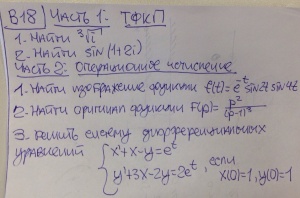 В18 ЧАСТЬ 1: ТФКП
1. НАЙТИ ³√i
2. НАЙТИ sin(1+2i)
ЧАСТЬ 2: Операционное исчисление
1. Найти изображение функции f(t)=e^-t sin2t sin4t
2. Найти оригинал функции F(p)= p²/(p-1)³
3. Решить систему дифференциальных
уравнений { x'+x-y=e^t
y'+3x-2y=2e^t, если x(0)=1, y(0)=1